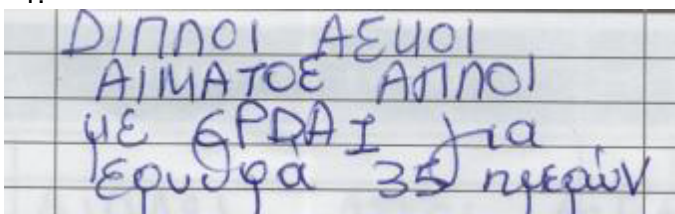 ΔΙΠΛΟΙ ΑΣΚΟΙ
ΑΙΜΑΤΟΣ ΑΠΛΟΙ
με CPDA I για
ερυθρά 35 ημερών